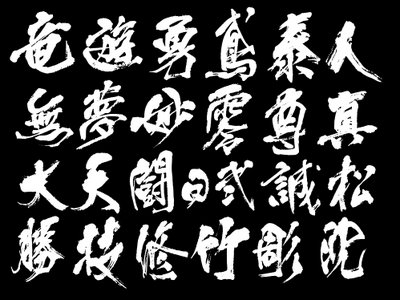 竜遊勇鳶泰人
無夢妙零尊真
大天闘日式誠松
勝技修竹彫